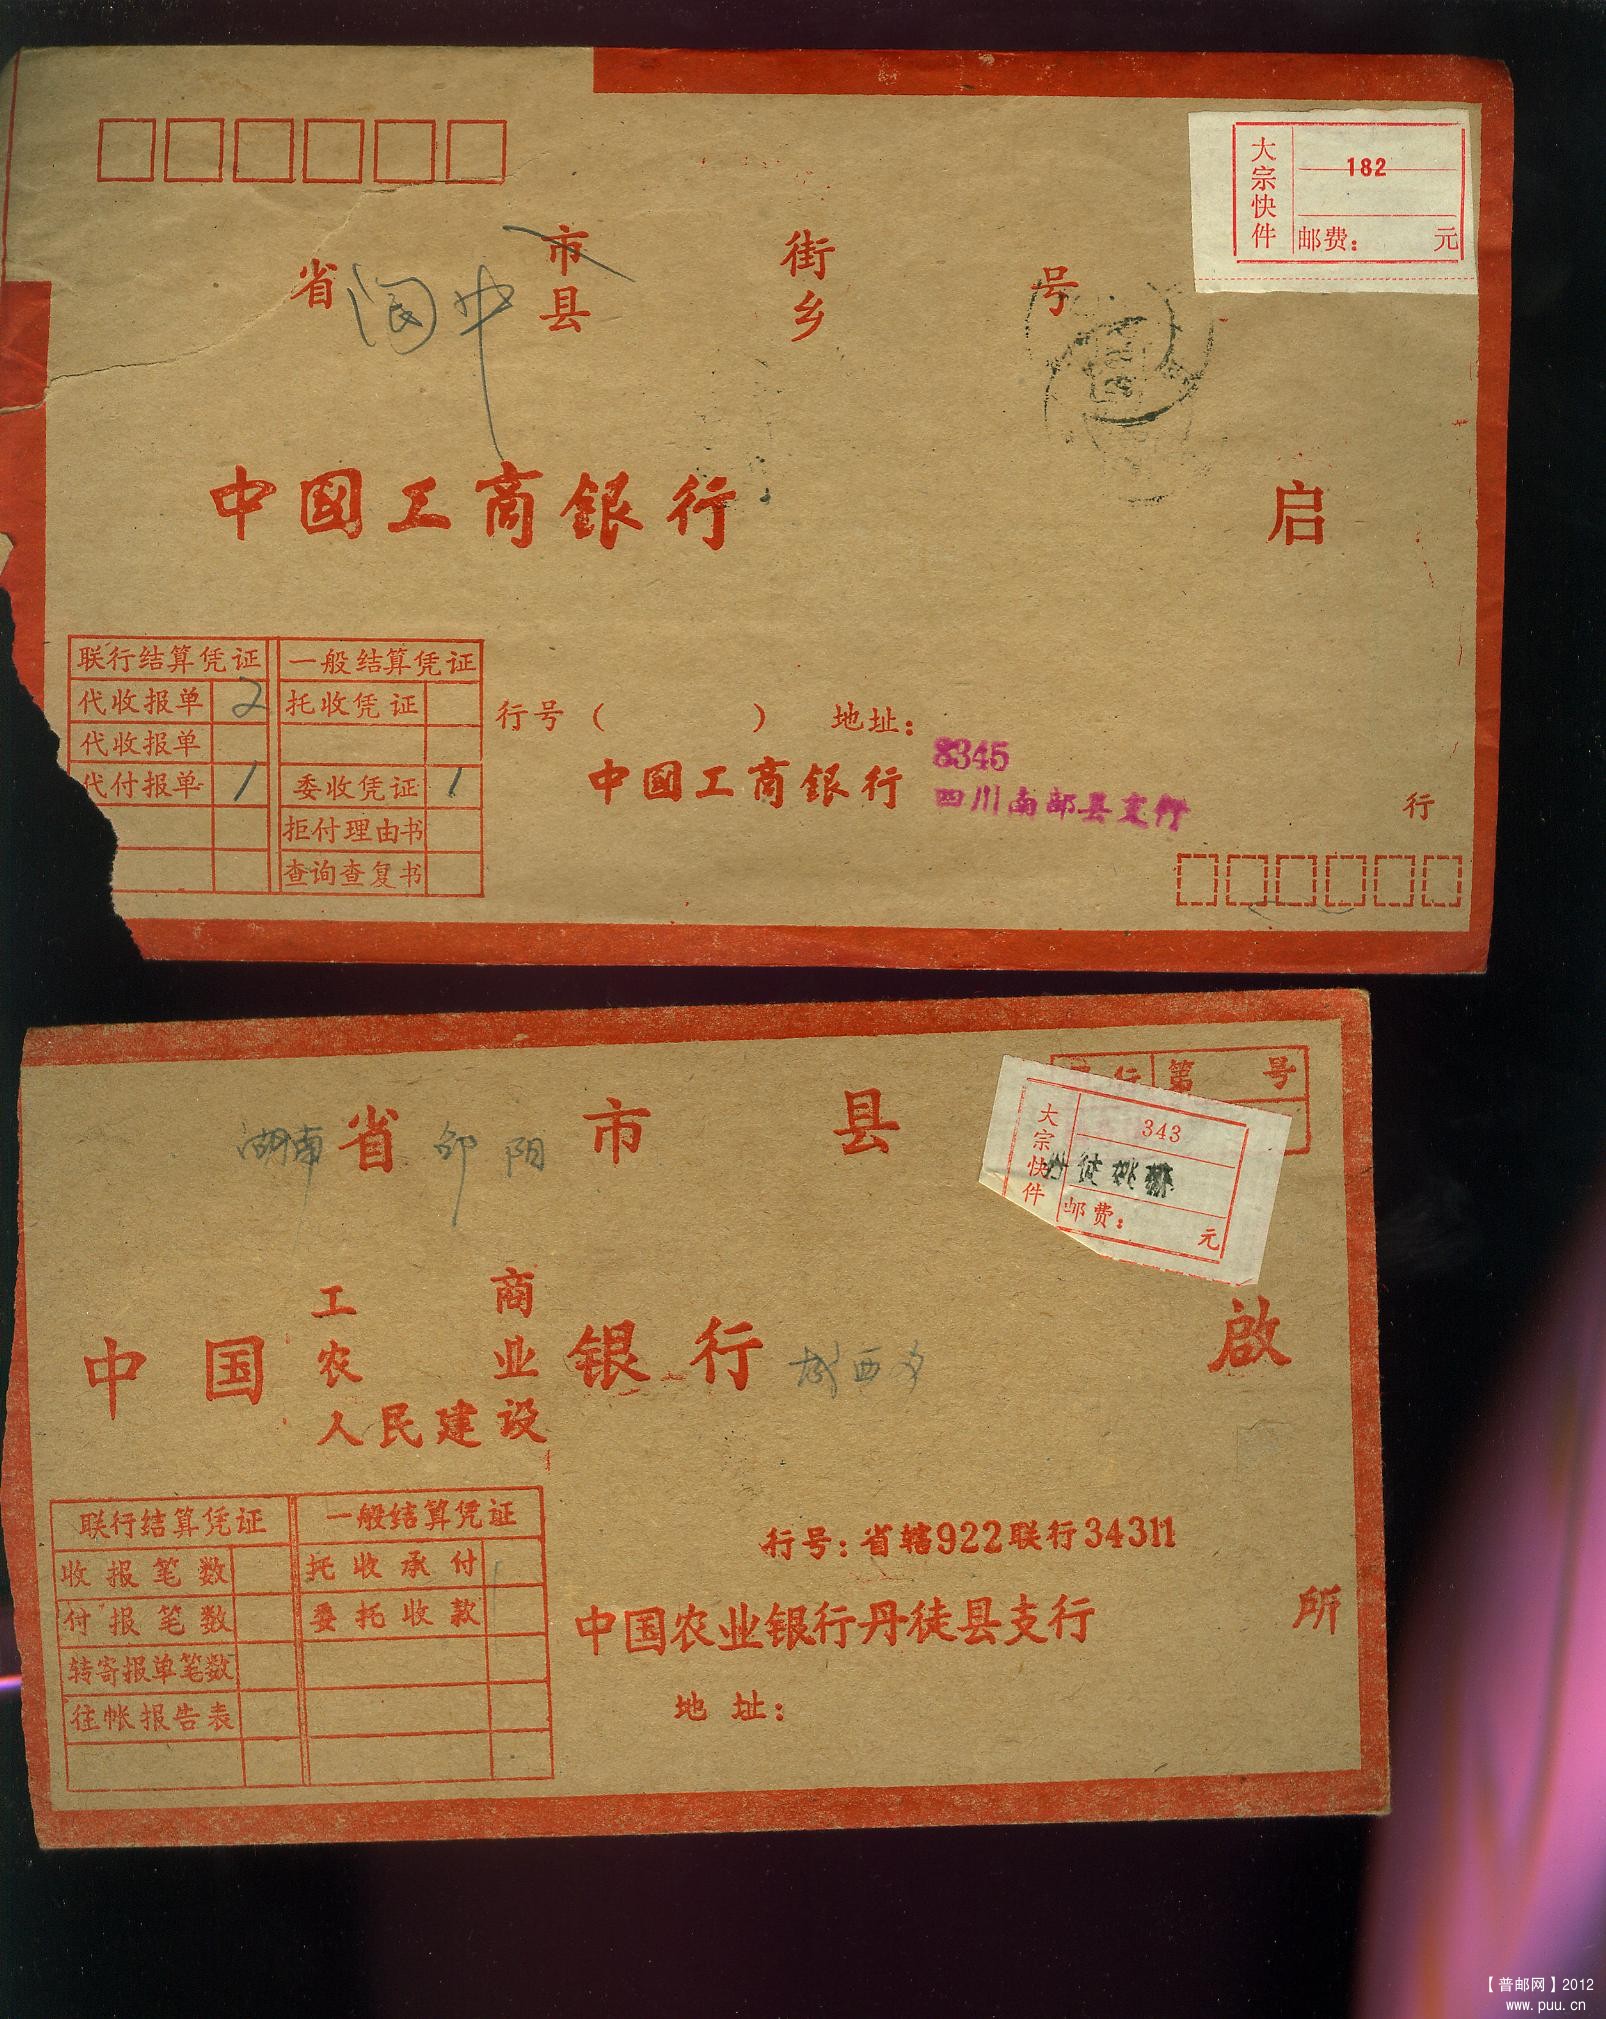 大宗快件
182
邮费： 元
省 阆中 市 县 街 乡 号
中國工商銀行 启
联行结算凭证 一般结算凭证
代收报单 2 托收凭证
代收报单
代付报单 1 委收凭证 1
拒付理由书
查询查复书
行号（ ） 地址：
8345
中國工商銀行 四川南部县支行 行
行 第 号
大宗快件
343
丹徒姚桥
邮费： 元
湖南省 邵阳市 县
中国 工商 农业 人民建设 银行 城西 啟
联行结算凭证 一般结算凭证
收报笔数 托收承付
付报笔数 委托收款
转寄报单笔数
往帐报告表
行号：省辖922联行34311
中国农业银行丹徒县支行 所
地址：
【普邮网】2012
www.puu.cn